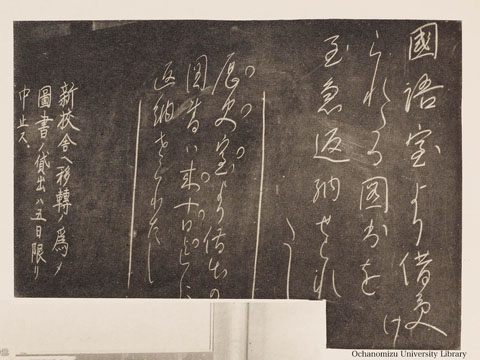 國語室より借受け
られたる図書を
至急返納せられ
たし
歴史室より借出の
図書ハ来十日迄に
返納せられたし
新校舎へ移轉ノ爲メ
圖書ノ貸出ハ五日限リ
中止ス、
Ochanomizu University Library